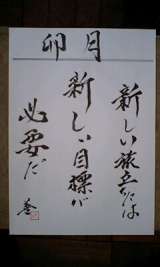 卯月
新しい旅立には
新しい目標が
必要だ